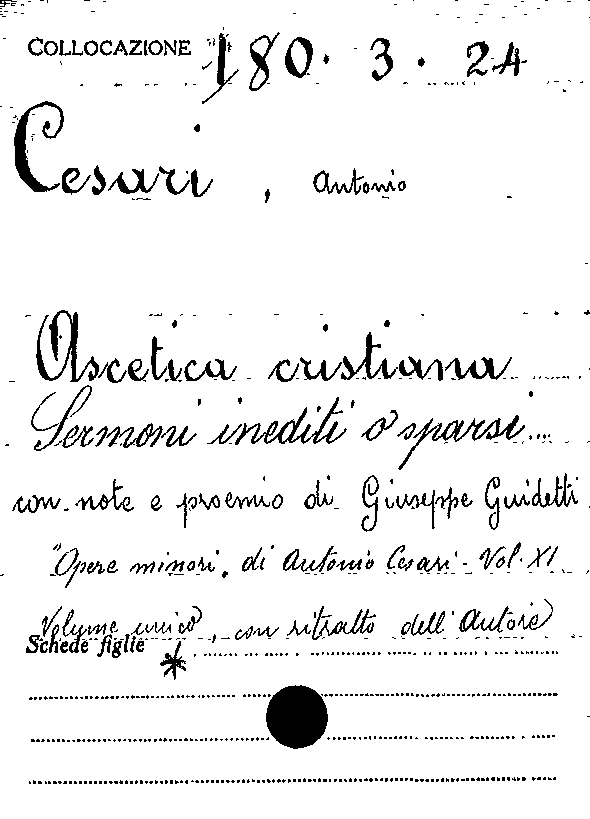 COLLOCAZIONE 180. 3. 24
Cesari, Antonio
Ascetica cristiana
Sermoni inediti o sparsi...
con note e proemio di Giuseppe Guidetti
"Opere minori, di Antonio Cesari - Vol. XI
Volume unico, con ritratto dell'Autore
Schede figlie *